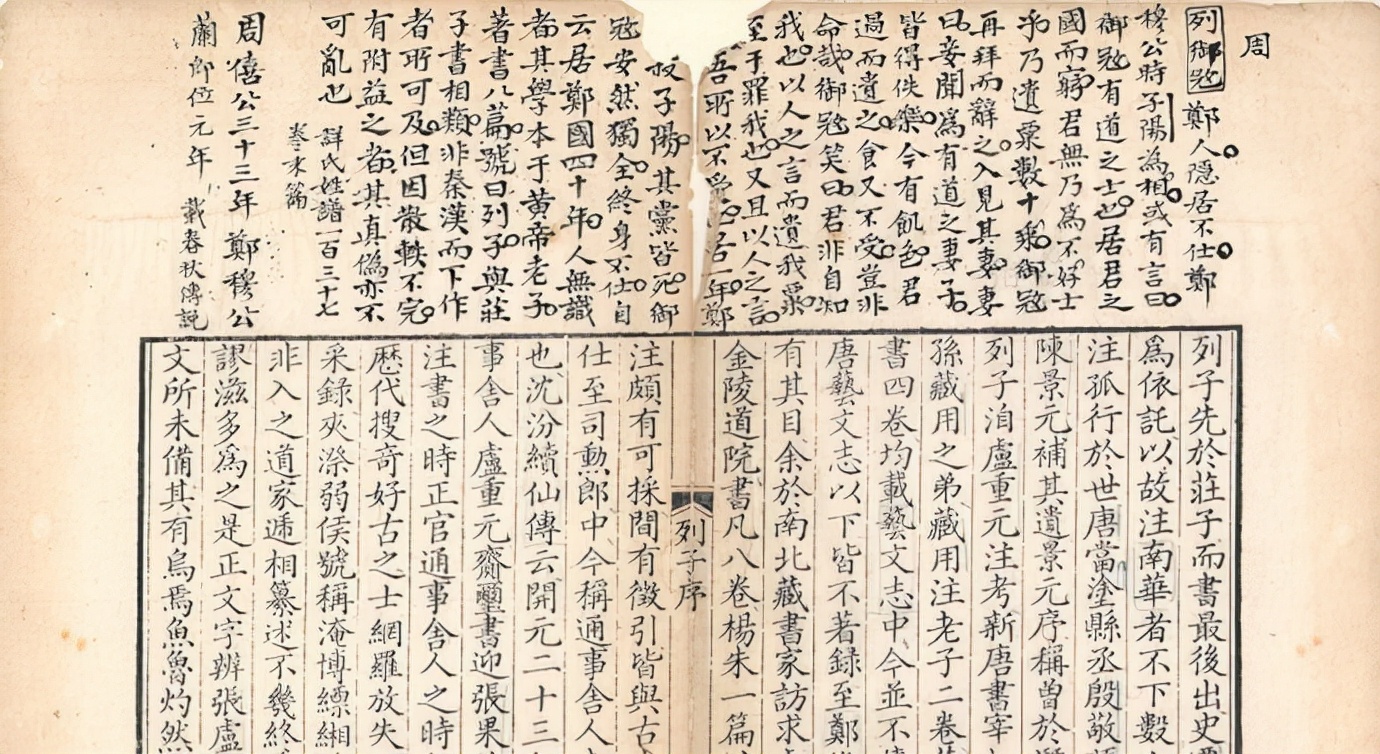 周
列御𡨥 鄭人隱居不仕鄭
穆公時子陽為相或有言曰
御𡨥有道之士也居君之
國而窮君無乃為不好士
乎乃遺粟數十乘御𡨥
再拜而辭之入見其妻妻
曰妾聞為有道之妻子
皆得佚樂今有飢色君
過而遺之食又不受豈非
命哉御𡨥笑曰君非自知
我也以人之言而遺我粟
至于罪我也又且以人之言
吾所以不受也居一年鄭
殺子陽其黨皆死御
𡨥安然獨全終身不仕自
云居鄭國四十年人無識
者其學本于黄帝老子
著書八篇號曰列子與莊
子書相類非秦漢而下作
者所可及但因散軼不完
有附益之者其真僞亦不
可亂也
詳氏姓譜一百三十七
周僖公三十三年鄭穆公
蘭郎位元年 載春秋傳説
列子先於莊子而書最後出史
爲依託以故注南華者不下數
注孤行於世唐當塗縣丞殷敬
陳景元補其遺景元序稱曾於
列子洎盧重元注考新唐書宰
孫藏用之弟藏用注老子二卷
書四卷均載藝文志中今並不
唐藝文志以下皆不著錄至鄭
有其目余於南北藏書家訪求
金陵道院書凡八卷楊朱一篇
列子序
注頗有可採間有徵引皆與古
仕至司勳郎中今稱通事舍人
也沈汾續仙傳云開元二十三
事舍人盧重元齎璽書迎張果
注書之時正官通事舍人之時
歷代搜奇好古之士網羅放失
采錄夾漈弱侯號稱淹博縹緗
非入之道家遞相纂述不幾終
謬滋多爲之是正文字辨張盧
文所未備其有烏焉魚魯灼然